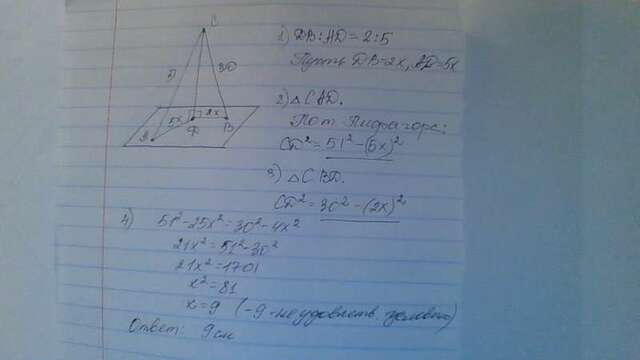 C
51
30
5x
2x
A
D
B
1) DB:AD = 2:5
Пусть DB=2x, AD=5x
2) △CAD.
По т. Пифагора:
CD²= 51²-(5x)²
3) △CBD.
CD²= 30²-(2x)²
4) 51²-25x²=30²-4x²
21x²=51²-30²
21x²=1701
x²=81
x=9 (-9-не удовлетв. условию)
Ответ: 9 см